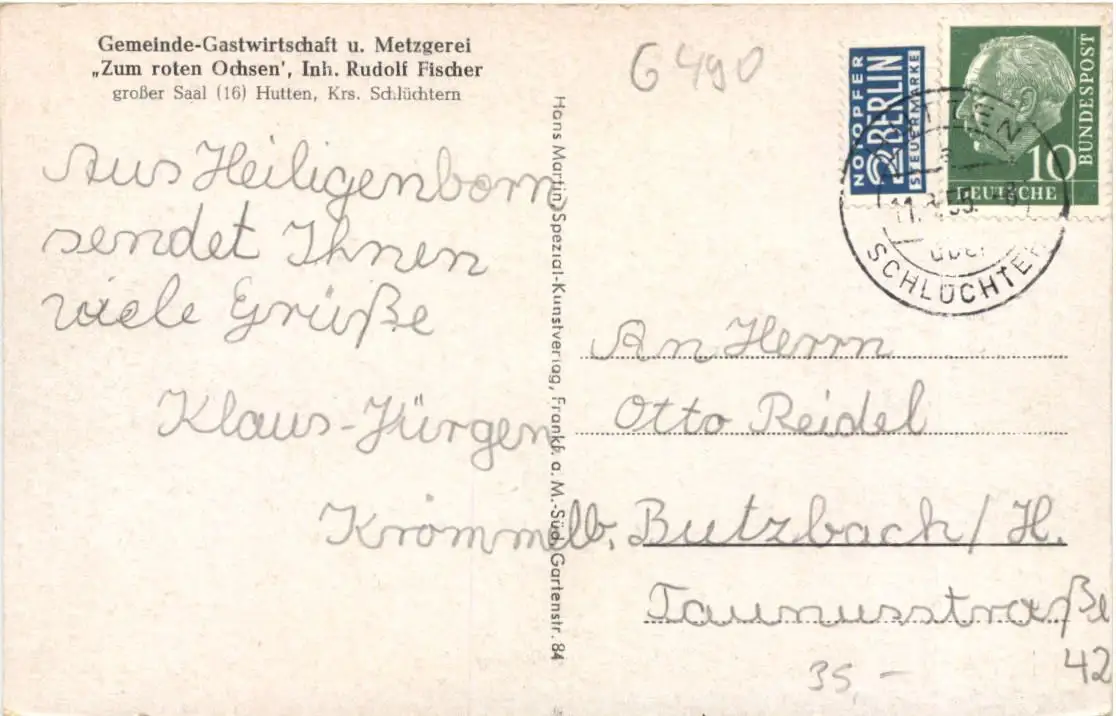 Gemeinde-Gastwirtschaft u. Metzgerei
„Zum roten Ochsen', Inh. Rudolf Fischer
großer Saal (16) Hutten, Krs. Schlüchtern
G 490
NOTOPFER
2 BERLIN
STEUERMARKE
BUNDESPOST
10
DEUTSCHE
über
SCHLÜCHTERN
Aus Heiligenborn
sendet Ihnen
viele Grüße
Klaus-Jürgen
Hans Martin, Spezial-Kunstverlag, Frankf. a. M.-Süd, Gartenstr. 84
An Herrn
Otto Reidel
Butzbach/H.
Taunusstraße
42
35,-